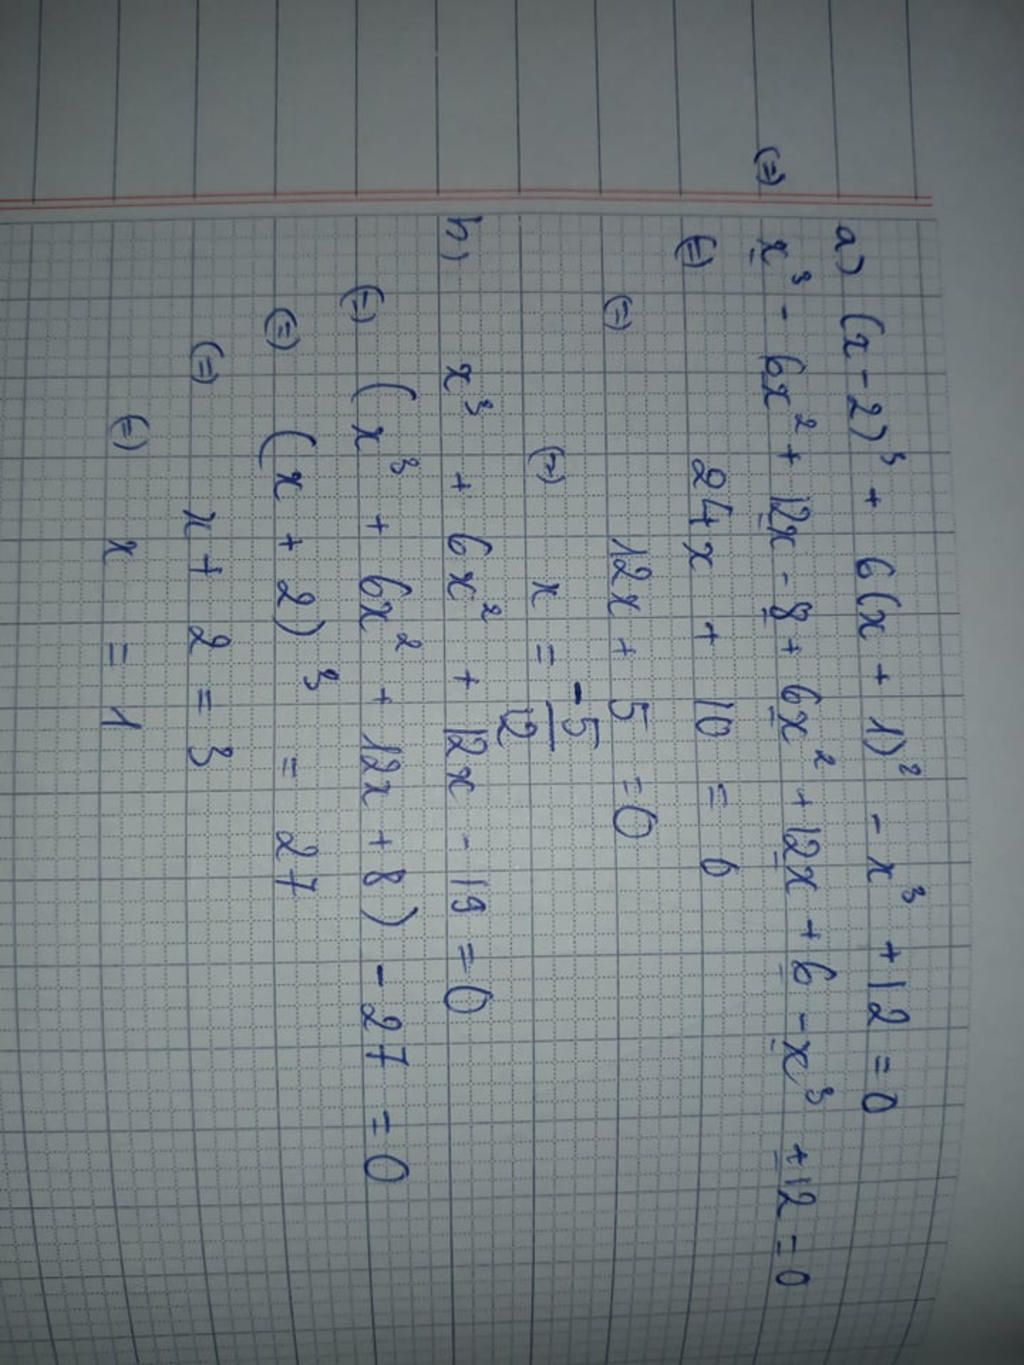 a) (x-2)³ + 6(x + 1)² - x³ + 12 = 0
(=) x³ - 6x² + 12x - 8 + 6x² + 12x + 6 - x³ + 12 = 0
(=) 24x + 10 = 0
(=) 12x + 5 = 0
(=) x = -5/12
b) x³ + 6x² + 12x - 19 = 0
(=) (x³ + 6x² + 12x + 8) - 27 = 0
(=) (x + 2)³ = 27
(=) x + 2 = 3
(=) x = 1